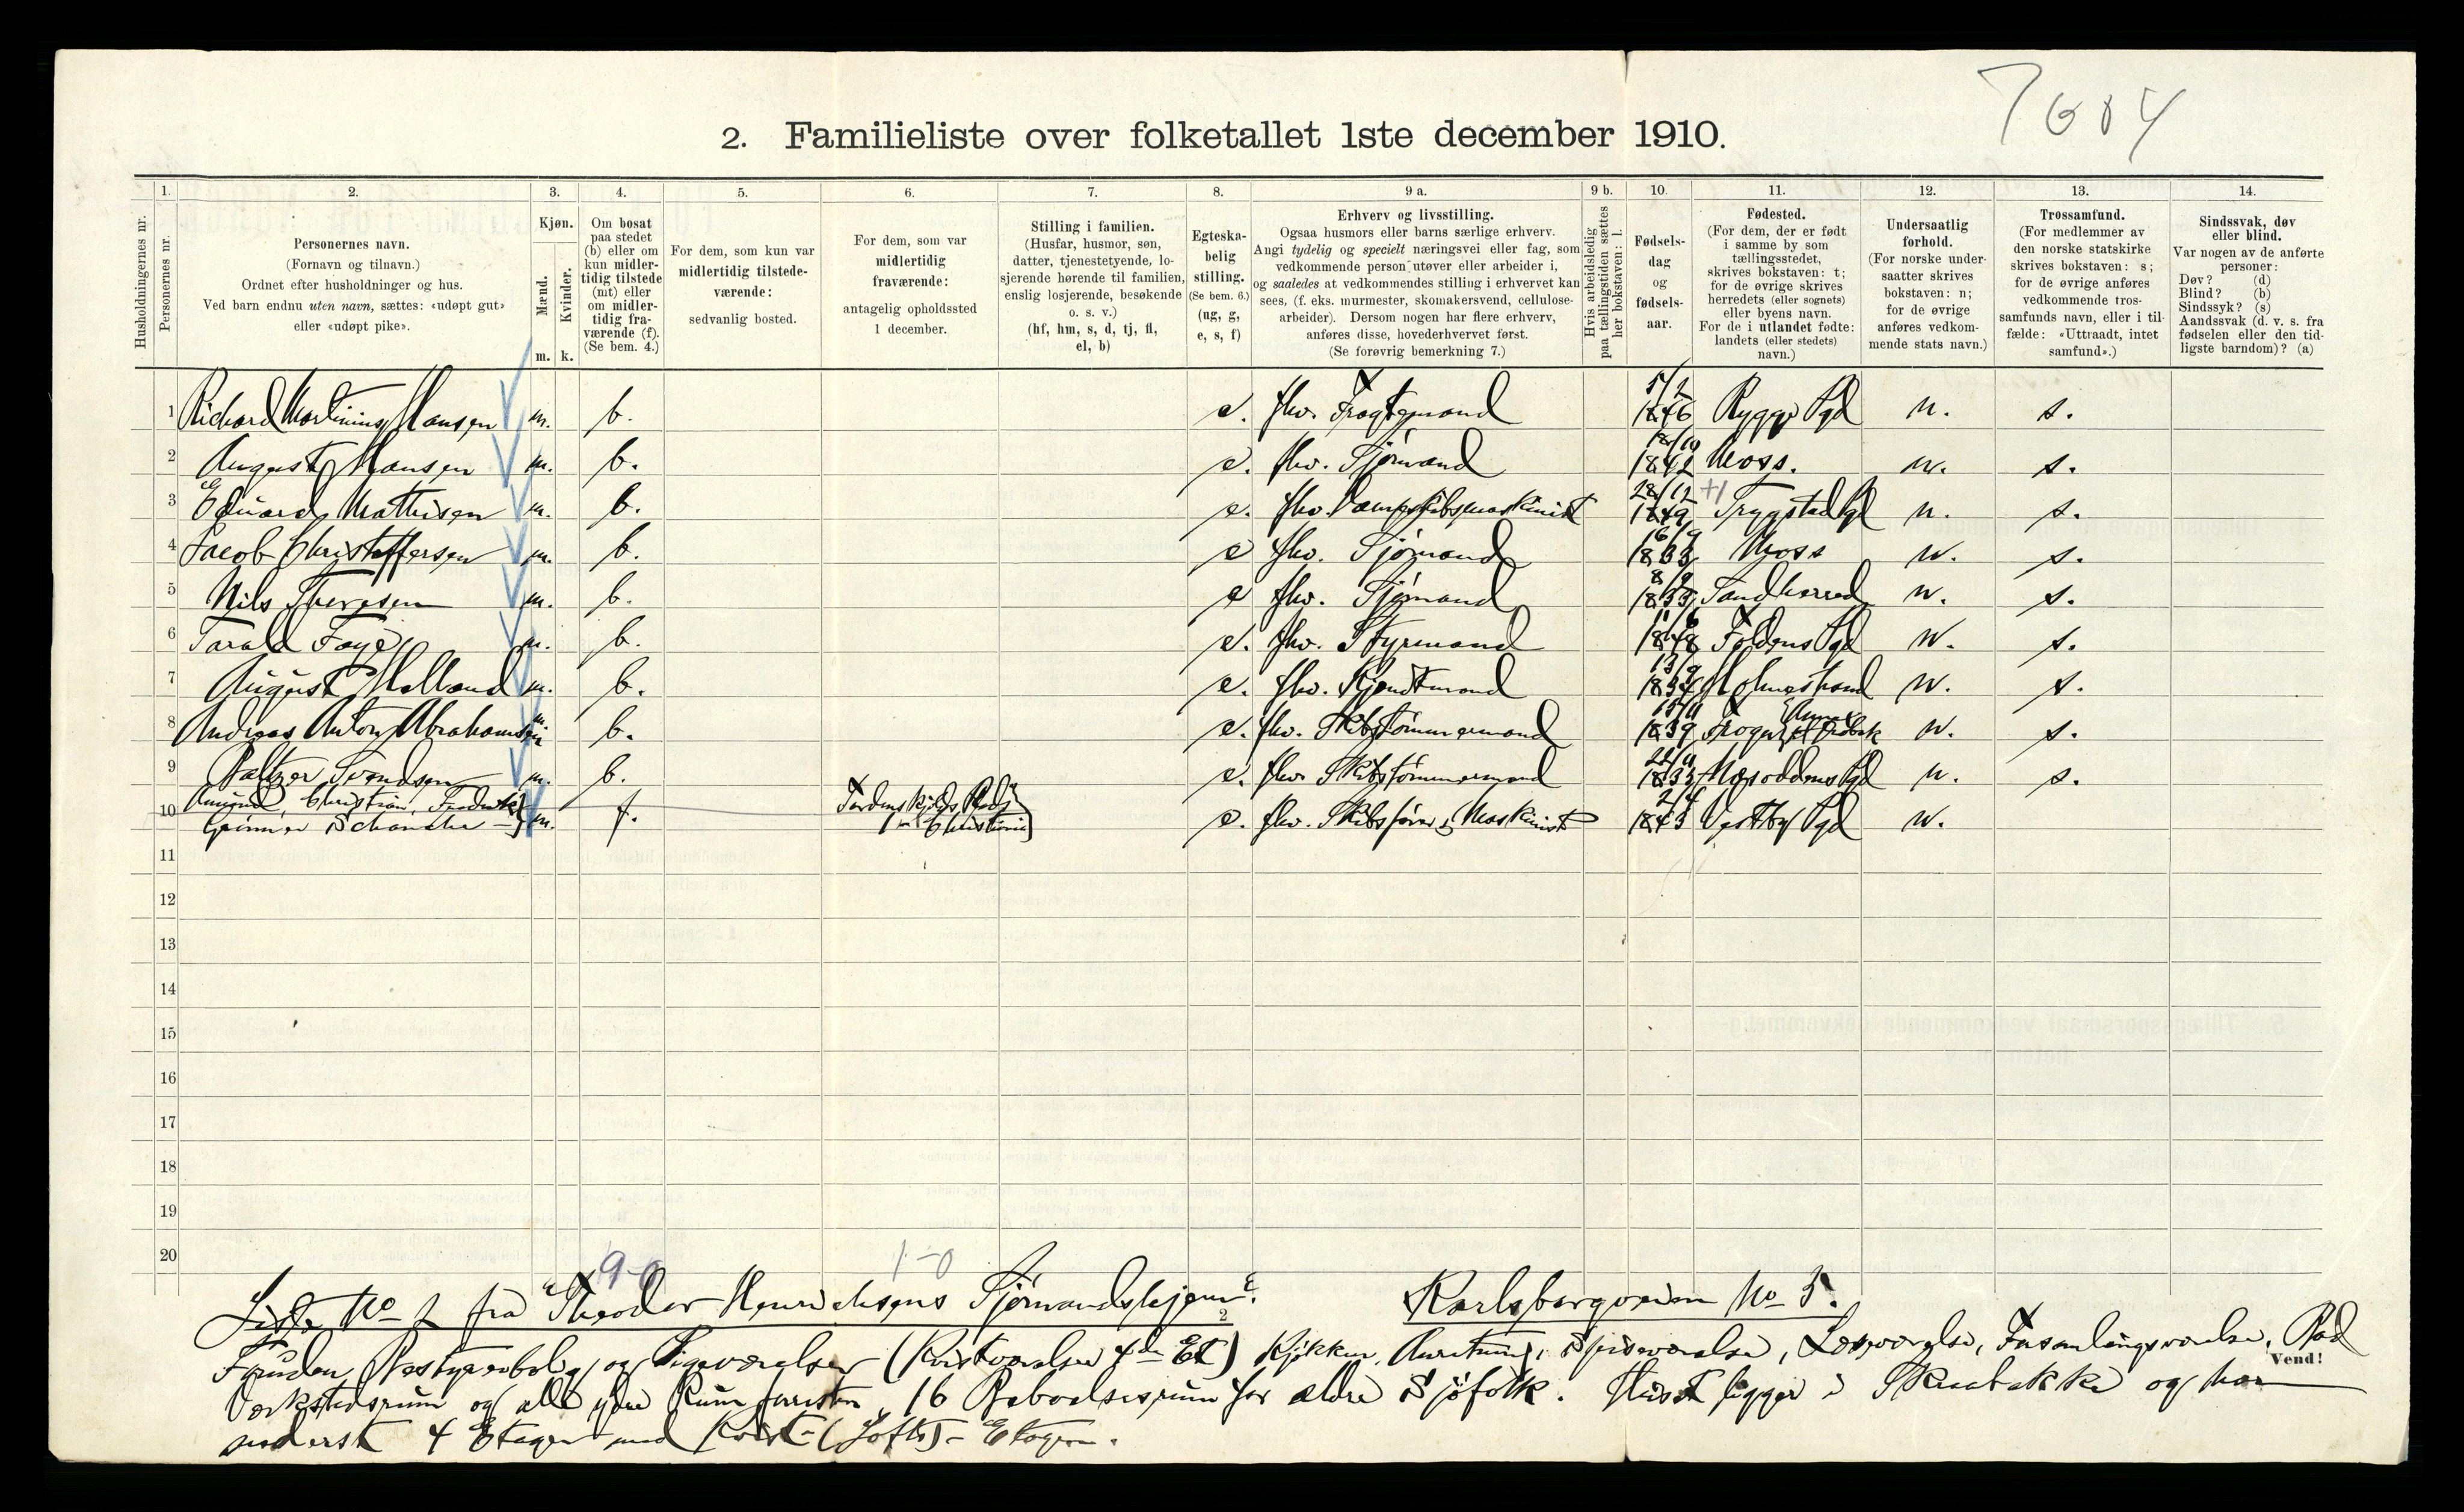 7684
2. Familieliste over folketallet 1ste december 1910.
1. 2. 3. 4. 5. 6. 7. 8. 9 a. 9 b. 10. 11. 12. 13. 14.
Husholdningernes nr.
Personernes nr.
Personernes navn.
(Fornavn og tilnavn.)
Ordnet efter husholdninger og hus.
Ved barn endnu uten navn, sættes: «udøpt gut»
eller «udøpt pike».
Kjøn.
Mænd.
Kvinder.
m. k.
Om bosat
paa stedet
(b) eller om
kun midler-
tidig tilstede
(mt) eller
om midler-
tidig fra-
værende (f).
(Se bem. 4.)
For dem, som kun var
midlertidig tilstede-
værende:
sedvanlig bosted.
For dem, som var
midlertidig
fraværende:
antagelig opholdssted
1 december.
Stilling i familien.
(Husfar, husmor, søn,
datter, tjenestetyende, lo-
sjerende hørende til familien,
enslig losjerende, besøkende
o. s. v.)
(hf, hm, s, d, tj, fl,
el, b)
Egteska-
belig
stilling.
(Se bem. 6.)
(ug, g,
e, s, f)
Erhverv og livsstilling.
Ogsaa husmors eller barns særlige erhverv.
Angi tydelig og specielt næringsvei eller fag, som
vedkommende person utøver eller arbeider i,
og saaledes at vedkommendes stilling i erhvervet kan
sees, (f. eks. murmester, skomakersvend, cellulose-
arbeider). Dersom nogen har flere erhverv,
anføres disse, hovederhvervet først.
(Se forøvrig bemerkning 7.)
Hvis arbeidsledig
paa tællingstiden sættes
her bokstaven: l.
Fødsels-
dag
og
fødsels-
aar.
Fødested.
(For dem, der er født
i samme by som
tællingsstedet,
skrives bokstaven: t;
for de øvrige skrives
herredets (eller sognets)
eller byens navn.
For de i utlandet fødte:
landets (eller stedets)
navn.)
Undersaatlig
forhold.
(For norske under-
saatter skrives
bokstaven: n;
for de øvrige
anføres vedkom-
mende stats navn.)
Trossamfund.
(For medlemmer av
den norske statskirke
skrives bokstaven: s;
for de øvrige anføres
vedkommende tros-
samfunds navn, eller i til-
fælde: «Uttraadt, intet
samfund».)
Sindssvak, døv
eller blind.
Var nogen av de anførte
personer:
Døv? (d)
Blind? (b)
Sindssyk? (s)
Aandssvak (d. v. s. fra
fødselen eller den tid-
ligste barndom)? (a)
1 Richard Martinius Hansen m. b. e. fhv. Fragtemand 5/2 1846 Rygge Pgd n. s.
2 August Hansen m. b. e. fhv. Sjømand 18/10 1842 Moss. n. s.
3 Eduard Mathisen m. b. e. fhv. Dampskibsmaskinist 28/12 1849 Trygstad Pgd n. s.
4 Jacob Christoffersen m. b. e fhv. Sjømand 16/9 1833 Moss n. s.
5 Nils Thoresen m. b. e fhv. Sjømand 8/9 1833 Sandherred n. s.
6 Tarald Faye m. b. e. fhv. Styrmand 1848 Foldens Pgd n. s.
7 August Holland m. b. e. fhv. Kjendtmand 13/9 1834 Holmestrand n. s.
8 Andreas Anton Abrahamsen m b. e. fhv. Skibstømmermand 1839 Frogn n. s.
9 Baltzer Svendsen m. b. e. fhv Skibstømmermand 1833 Næsoddens Pgd n. s.
10 Amund Christian Fredrik
m. f. Christiania e. fhv. Skibsfører & Maskinist 2/4 1843 Vestby Pgd n.
11
12
13
14
15
16
17
18
19
20
9-0 1-0
Liste No 2 fra Theodor Henrichsens Sjømandshjem. Karlsborgveien No 5.
2
Foruden Bestyrerbolig og Pigeværelser (Kvistværelser 4de Et) Kjøkken, Anretning, Spiseværelse, Læseværelse, Forsamlingsværelse, Bad
Vend!
Værkstedsrum og alle ydre Rum 16 Beboelsesrum for ældre Sjøfolk. Huset ligger i Skraabakke og har
nederst 4 Etager med Kvist-(Lofts)-Etagen.